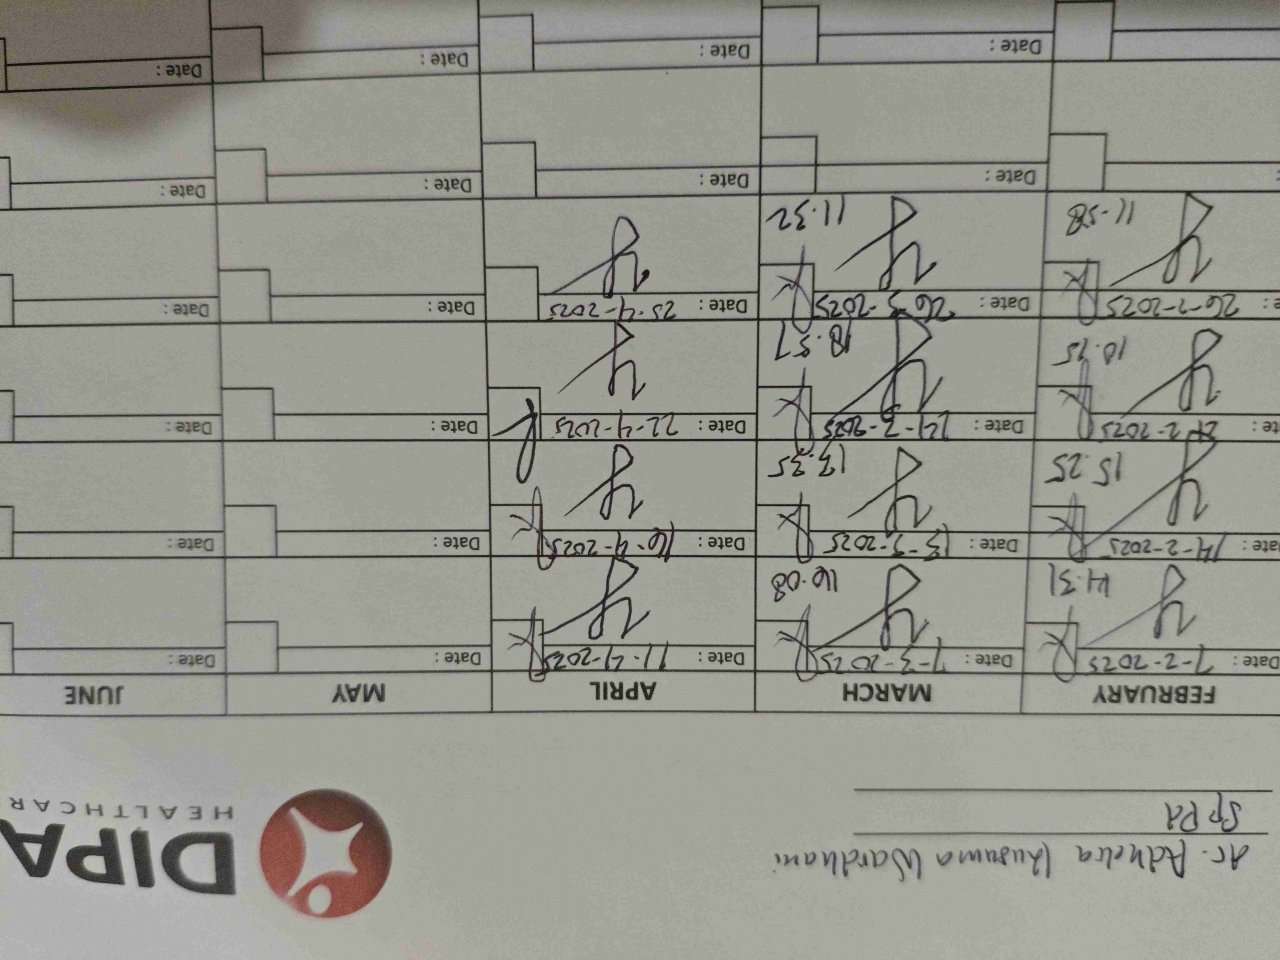 dr. Adhelia Kusuma Wardhani
Sp PD
DIPA
HEALTHCAR
FEBRUARY MARCH APRIL MAY JUNE
Date : 7-2-2025 Date : 7-3-2025 Date : 11-4-2025 Date : Date :
14.31 16.08
Date : 14-2-2025 Date : 13-3-2025 Date : 16-4-2025 Date : Date :
15.25 13.35
Date : 21-2-2025 Date : Date : 22-4-2025 Date : Date :
18.57
Date : 26-2-2025 Date : 26-3-2025 Date : 25-4-2025 Date : Date :
11.58 11.32
Date : Date : Date : Date :
Date : Date : Date : Date :